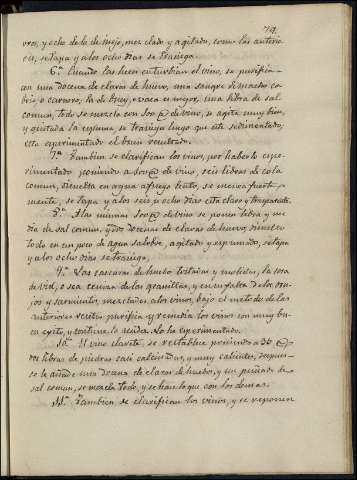 79.
y ocho de la de viejo, mezclado y agitado, como las anterio-
res, se tapa y a los ocho dias se trasiega.
6.ª Cuando las heces enturbian el vino, se purifica
con una docena de claras de huevo, una sangre de macho ca-
brio, o carnero, la de buey, o vaca es mejor, una libra de sal
comun, todo se mezcla con 100 @ de vino, se agita muy bien,
y quitada la espuma, se trasiega luego que este sedimentado;
esta esperimentado el buen resultado.
7.ª Tambien se clarifican los vinos, por haberlo espe-
rimentado poniendo a 100 @ de vino, seis libras de cola
comun, disuelta en agua a fuego lento, se menea fuerte-
mente, se tapa y a los seis u ocho dias está claro y trasparente.
8.ª A las mismas 100 @ de vino se ponen libra y me-
dia de sal comun, y dos docenas de claras de huevo, disuelto
todo en un poco de agua salobre, agitado y espumado, se tapa
y a los ocho dias se trasiega.
9.ª Las cascaras de huevo tostadas y molidas, la
de vid, o sea ceniza de las granillas, y en su falta de los oru-
jos y sarmientos, mezclados a los vinos, bajo el metodo de las
anteriores recetas, purifica y remedia los vinos con muy bu-
en exito, y contiene lo acedo. Lo he esperimentado.
10.ª El vino clarete, se restablece poniendo a 30 @
dos libras de piedras casi calcinadas, y muy calientes, despues
se le añade una docena de claras de huevo, y un puñado de
sal comun, se mezcla todo, y se hace lo que con los demas.
11.ª Tambien se clarifican los vinos, y se reponen